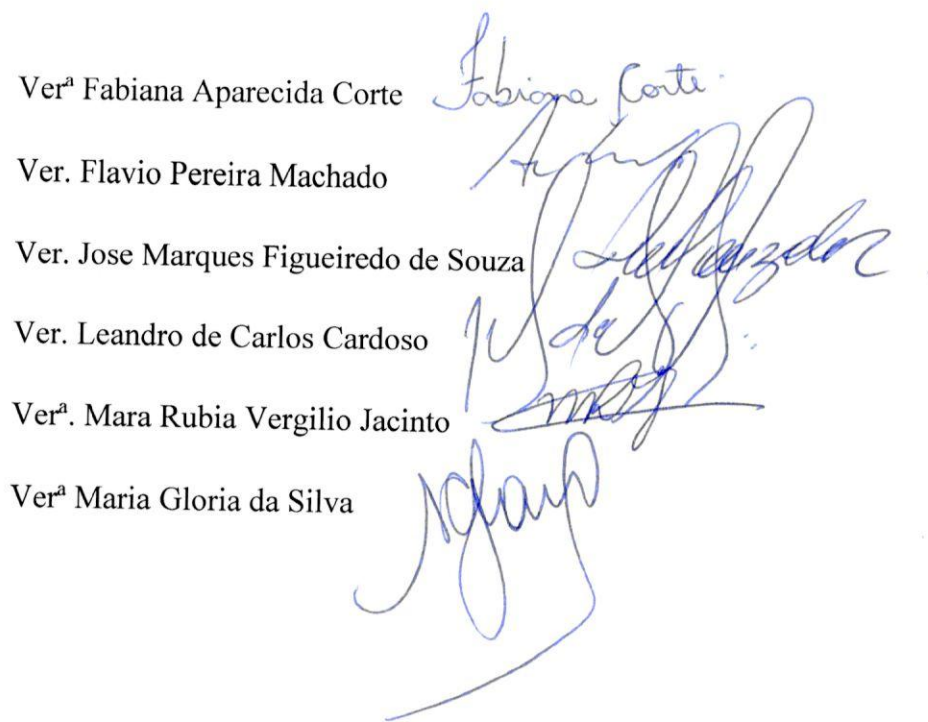 Verª Fabiana Aparecida Corte Fabiana Corte
Ver. Flavio Pereira Machado
Ver. Jose Marques Figueiredo de Souza
Ver. Leandro de Carlos Cardoso
Verª. Mara Rubia Vergilio Jacinto
Verª Maria Gloria da Silva